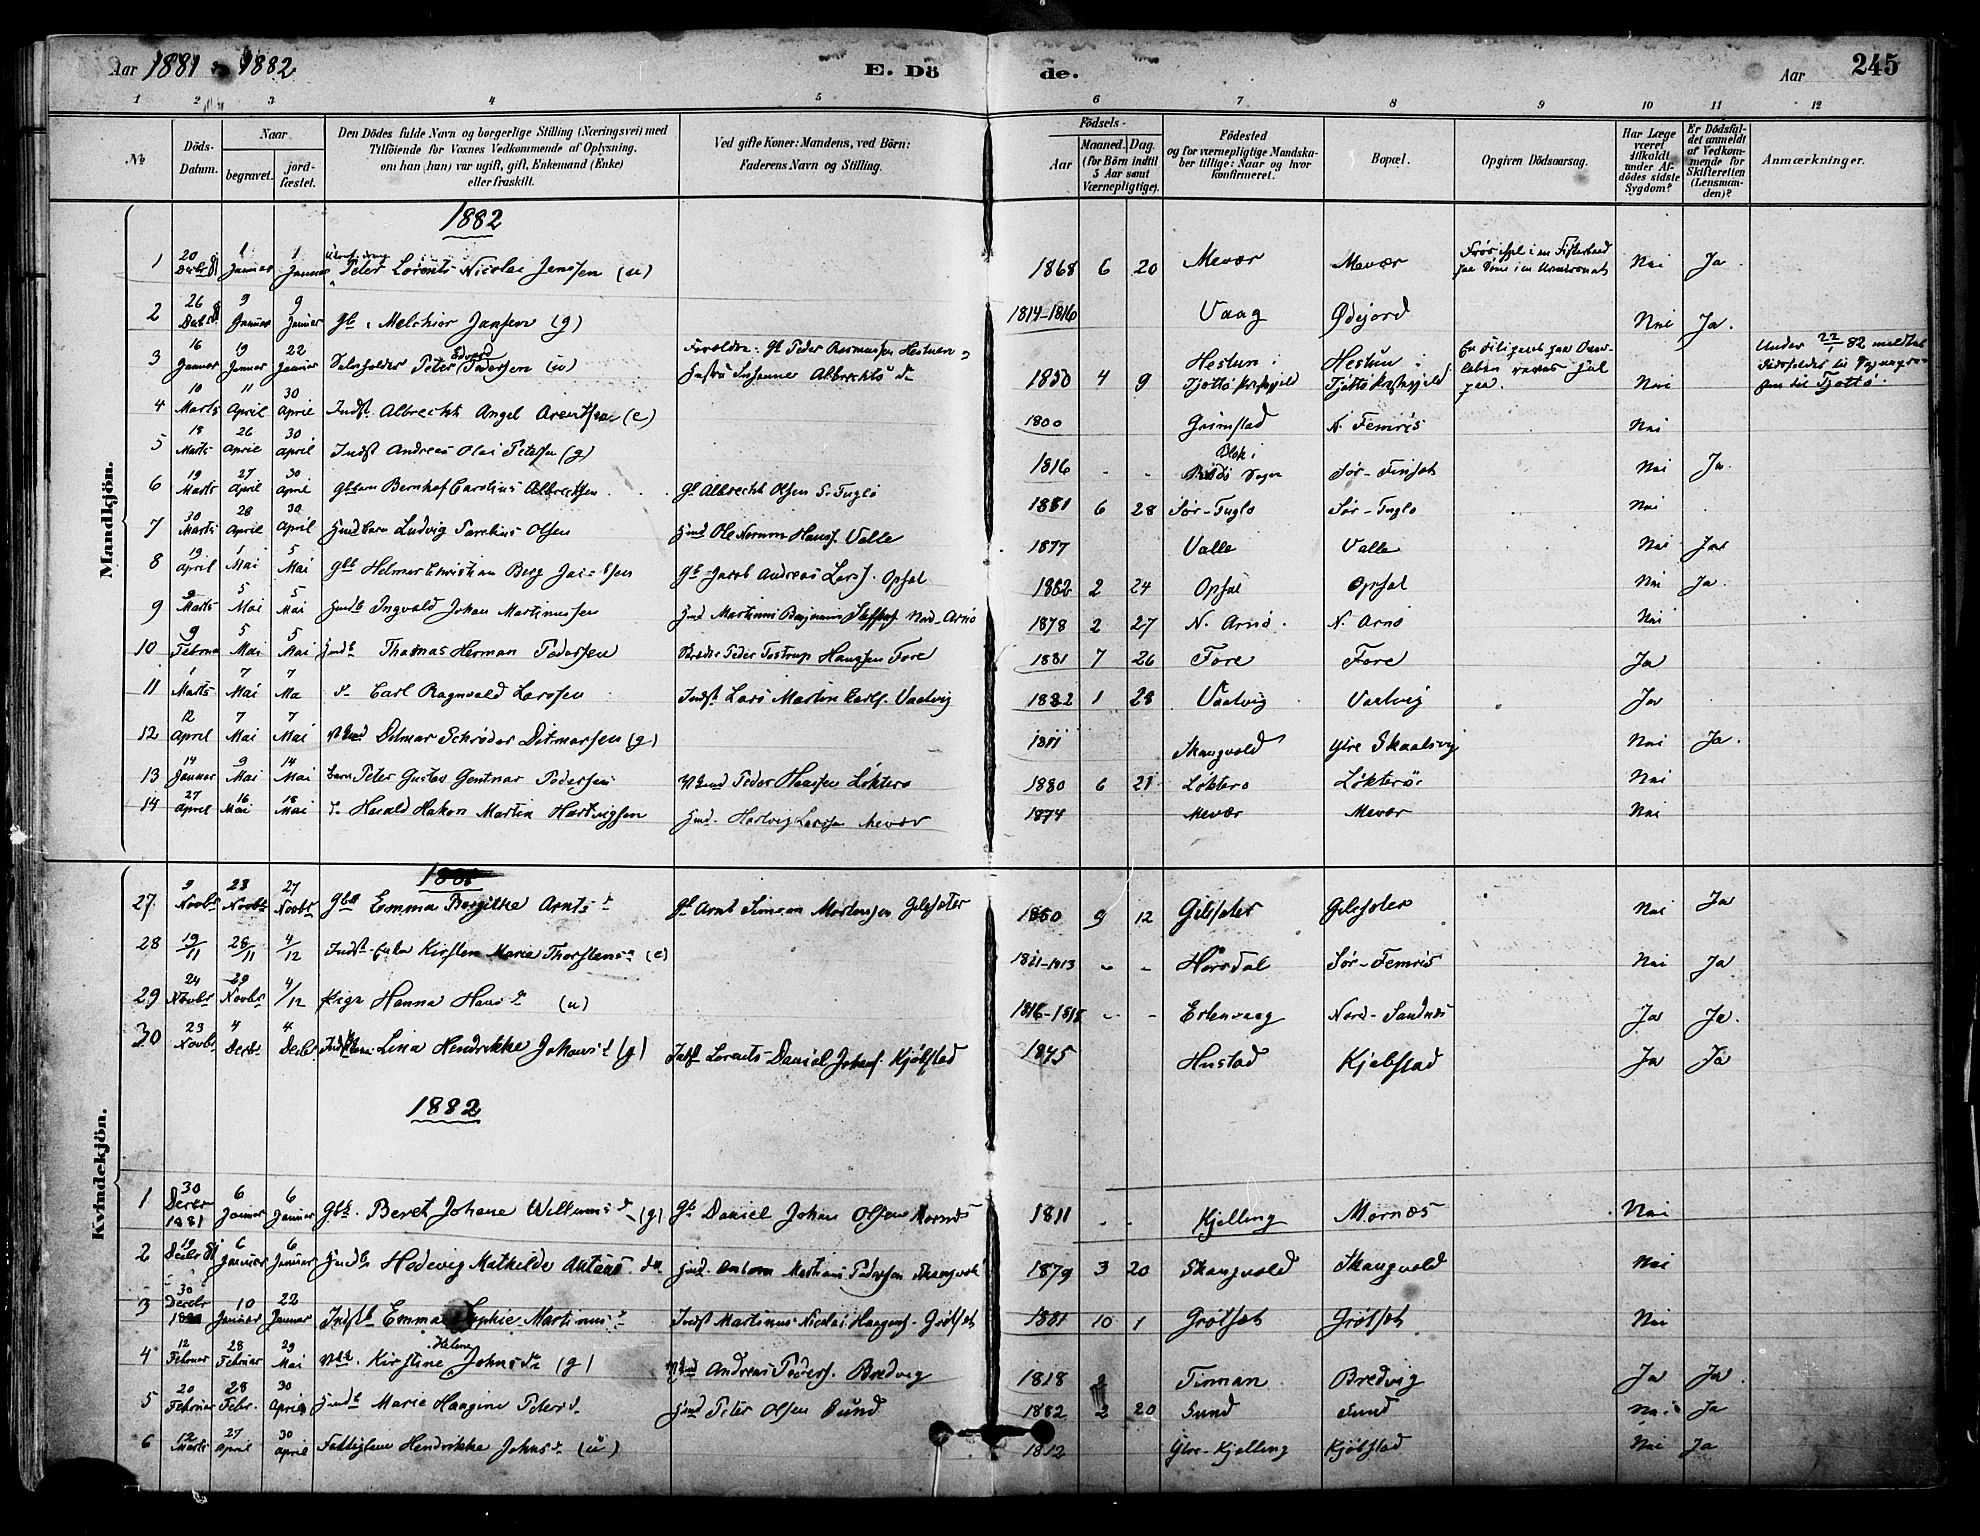 Aar 1881 1882
E. Dö
de.
Aar
245
1 2 3 4 5 6 7 8 9 10 11 12
№
Döds-Datum.
Naar
begravet.
jordfæstet.
Den Dödes fulde Navn og borgerlige Stilling (Næringsvei) med
Tilföiende for Voxnes Vedkommende af Oplysning,
om han (hun) var ugift, gift, Enkemand (Enke)
eller fraskilt.
Ved gifte Koner: Mandens, ved Börn:
Faderens Navn og Stilling.
Födsels-
Aar
Maaned. Dag.
(for Börn indtil
5 Aar samt
Værnepligtige).
Födested
og for værnepligtige Mandskaber tillige: Naar og hvor
konfirmeret.
Bopæl.
Opgiven Dödsaarsag.
Har Læge
været
tilkaldt
under Afdödes sidste
Sygdom?
Er Dödsfaldet anmeldt
af Vedkommende for
Skifteretten
(Lensmanden)?
Anmærkninger.
Mandkjön.
1882
1 20 Decbr 81 1 Januar 1 Januar Peter Lorents Nicolai Jenssen (u) 1868 6 20 Mevær Mevær Nei Ja
2 26 Decbr 81 9 Januar 9 Januar Gb. Melchior Jansen (g) 1814-1816 Vaag Ødejord Nei Ja.
3 16 Januar 19 Januar 22 Januar Peter Edvard Pedersen (u) Forældre: Gb Peder Rasmussen Hestun Susanne Albrechts dr 1850 4 9 Hestun i Tjøttø Hestun i Tjøttø Nei Under 22/1 82 meldt
4 10 Marts 11 April 30 April Indst. Albrecht Angel Arentsen (e) 1800 Grimstad N. Femris Nei
5 18 Marts 26 April 30 April Indst Andreas Olai Petersen (g) 1816 - - Bodø Sogn Sør-Finset Nei Ja
6 19 Marts 27 April 30 April Gbbarn Bernhof Carolius Albrectsen Gb Albrecht Olsen S. Fuglø 1881 6 28 Sør-Fuglø Sør-Fuglø Nei
7 30 Marts 28 April 30 April Hmdbarn Ludvig Parelius Olsen Hmd Ole Normon Hanss. Valle 1877 Valle Valle Nei Ja
8 19 April 1 Mai 5 Mai Gbb Helmer Christian Berg Jacobsen Gb Jacob Andreas Larss. Opsal 1882 2 24 Opsal Opsal Nei Ja.
9 9 Marts 5 Mai 5 Mai Hmdb Ingvald Johan Martinussen Hmd Martinus Benjamin Steffens. Nord-Arnø 1878 2 27 N. Arnø N. Arnø Nei
10 9 Februar 5 Mai 5 Mai Hmdb Thomas Herman Pedersen Peder Tostrup Hanssen Fore 1881 7 26 Fore Fore Ja
11 1 Marts 7 Mai 7 Mai Carl Ragnvald Larssen Indst Lars Martin Carls. Vaatvig 1882 1 28 Vaatvig Vaatvig Ja
12 12 April 7 Mai 7 Mai Ditmar Schrøder Ditmarsen (g) 1811 Skaugvold Ytre Skaalsvig Nei Ja.
13 14 Januar 9 Mai 14 Mai barn Peter Gustav Gentner Pedersen Peder Hanssen Løkterø 1880 6 21 Løkterø Løkterø Nei
14 27 April 16 Mai 18 Mai Harald Hakon Martin Hartvigsen Hmd. Hartvig Larssen Mevær 1874 Mevær Mevær Nei
Kvindekjön.
1881
27 9 Novbr 23 Novbr 27 Novbr Gbb Emma Bergitte Arnts dr Gb Arnt Simon Mortensen Gilsæter 1880 9 12 Gilsæter Gilsæter Nei Ja
28 19/11 28/11 4/12 Indst. Enke Kirsten Marie Thorstens dr (e) 1811-1813 - - Horsdal Sør-Femris Nei Ja
29 24 Novbr 29 Novbr 4/12 Pige Hanna Hans dr (u) 1816-1818 - - Erlensvaag Nord-Sandnes Ja Ja.
30 23 Novbr 4 Decbr 4 Decbr Lina Hendrikke Johans d (g) Indst Lorents Daniel Johans. Kjøbstad 1845 Hustad Kjøbstad Ja Ja
1882
1 30 Decbr 1881 6 Januar 6 Januar Gbk. Beret Johane Willums d (g) Gb Daniel Johan Olsen Mornes 1811 - - Kjelling Mornæs Nei
2 19 Decbr 81 6 Januar 6 Januar Hmdb Hedevig Mathilde Antons dr Hmd. Anton Martinus Pedersen Skaugvold 1879 3 20 Skaugvold Skaugvold Nei
3 30 Decbr 1881 10 Januar 22 Januar Indstb Emma Sophie Martinus d Indst Martinus Nicolai Haagens. Grøtset 1881 10 1 Grøtset Grøtset Nei
4 12 Februar 28 Februar 29 Mai Kirstine Helene Johns dr (g) Andreas Peders. Bredvig 1818 Finman Bredvig Ja Ja
5 20 Februar 28 Febr. 30 April Hmdb Marie Haagine Peters d. Hmd Peter Olsen Sund 1882 2 20 Sund Sund Nei Ja
6 12 Marts 27 April 30 April Fattiglem Hendrikke Johns dr (u) 1812 Ytre-Kjelling Kjøbstad Nei Ja